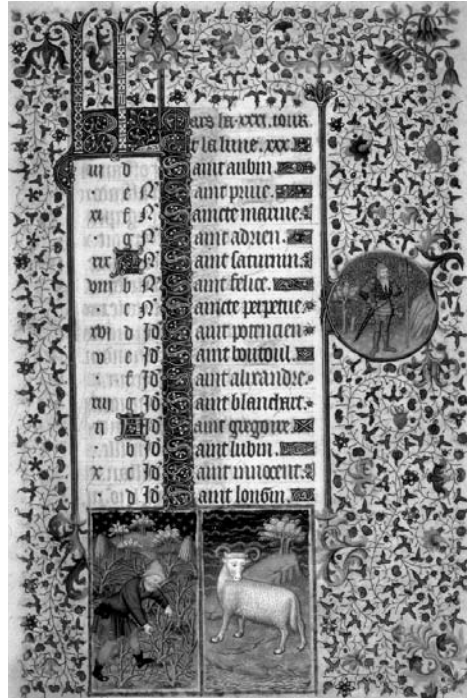 Mars la .xxxi. iour
Et la lune .xxx.
iii d Saint aubin.
. e N Saint priue.
xi f N Saincte marine.
. g N Saint adrien.
xix A N Saint saturnin.
viii b N Saint felice.
. c N Saincte perpetue.
xvi d Id Saint potencien
v e Id Saint boutoul.
. f Id Saint alixandre.
xiii g Id Saint blanchart.
ii A Id Saint gregoire.
. b Id Saint lubin.
x c Id Saint innocent.
. d Id Saint longin.